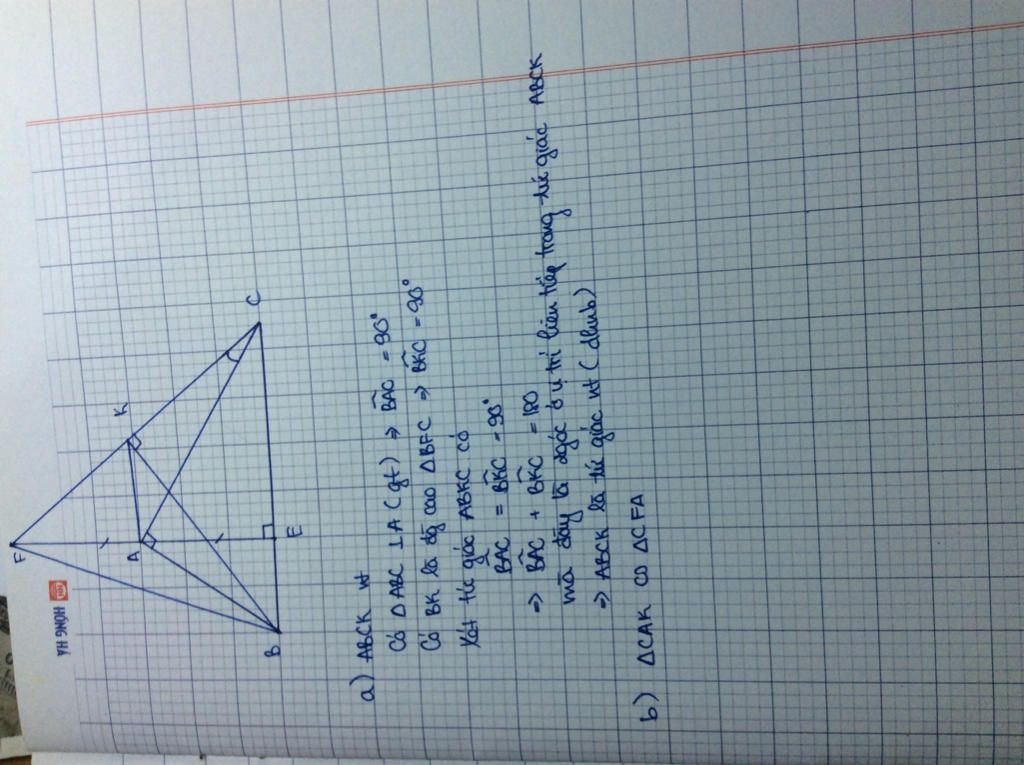 HỒNG HÀ
F
K
A
C
B
E
a) ABCK nt
Có ΔABC ⊥ A (gt) ⇒ BAC = 90°
Có BK là đg cao ΔBFC ⇒ BKC = 90°
Xét tứ giác ABKC có
BAC = BKC = 90°
⇒ BAC + BKC = 180
mà đây là 2góc ở vị trí liên tiếp trong tứ giác ABCK
⇒ ABCK là tứ giác nt (dhnb)
b) ΔCAK ∽ ΔCFA